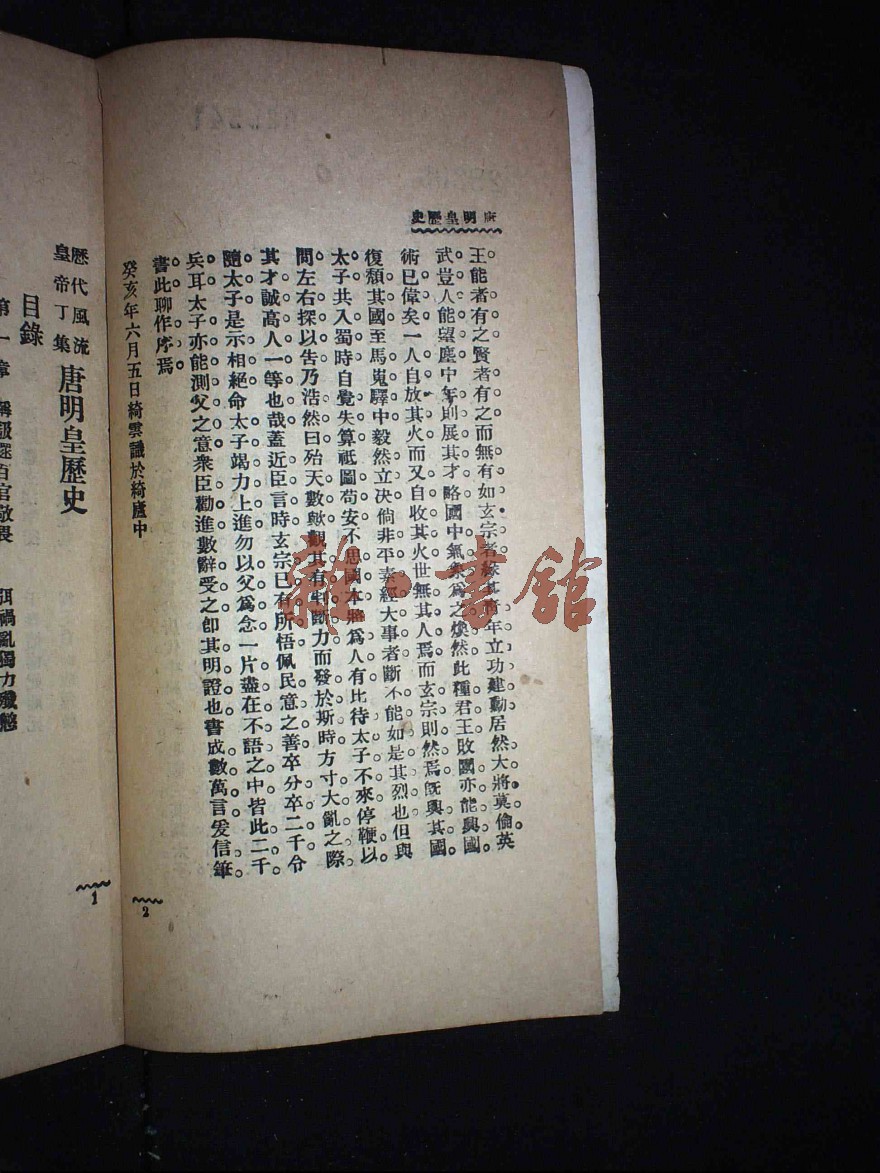 唐明皇歷史
王能者有之賢者有之而無有如玄宗者緣其壯年立功建勳居然大將莫倫英
武豈人能望塵中年則展其才略國中氣象爲之煥然此種君王敗國亦能興國
術已偉矣一人自放其火而又自收其火世無其人焉而玄宗則然焉既興其國
復頹其國至馬嵬驛中毅然立決倘非平素經大事者斷不能如是其烈也但與
太子共入蜀時自覺失算祇圖苟安不思國本將爲人有比待太子不來停鞭以
問左右探以告乃浩然曰殆天數歟觀其有判斷力而發於斯時方寸大亂之際
其才誠高人一等也哉蓋近臣言時玄宗已有所悟佩民意之善卒分卒二千令
隨太子是示相絕命太子竭力上進勿以父爲念一片盡在不語之中皆此二千
兵耳太子亦能測父之意衆臣勸進數辭受之卽其明證也書成數萬言爰信筆
書此聊作序焉
癸亥年六月五日綺雲識於綺廬中
2
歷代風流
皇帝丁集
唐明皇歷史
目錄
第一章
百官敬畏
弭禍亂獨力殲
1
雜·書館